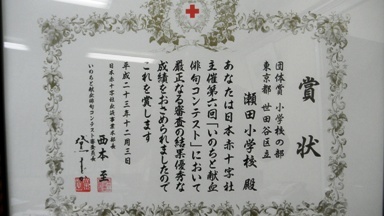 賞状
団体賞 小学校の部
東京都 世田谷区立
瀬田小学校 殿
あなたは日本赤十字社
主催第六回「いのちと献血
俳句コンテスト」において
厳正なる審査の結果優秀な
成績をおさめられましたので
これを賞します
平成二十三年十二月三日
日本赤十字社血液事業本部長
西本 至
いのちと献血俳句コンテスト審査員長